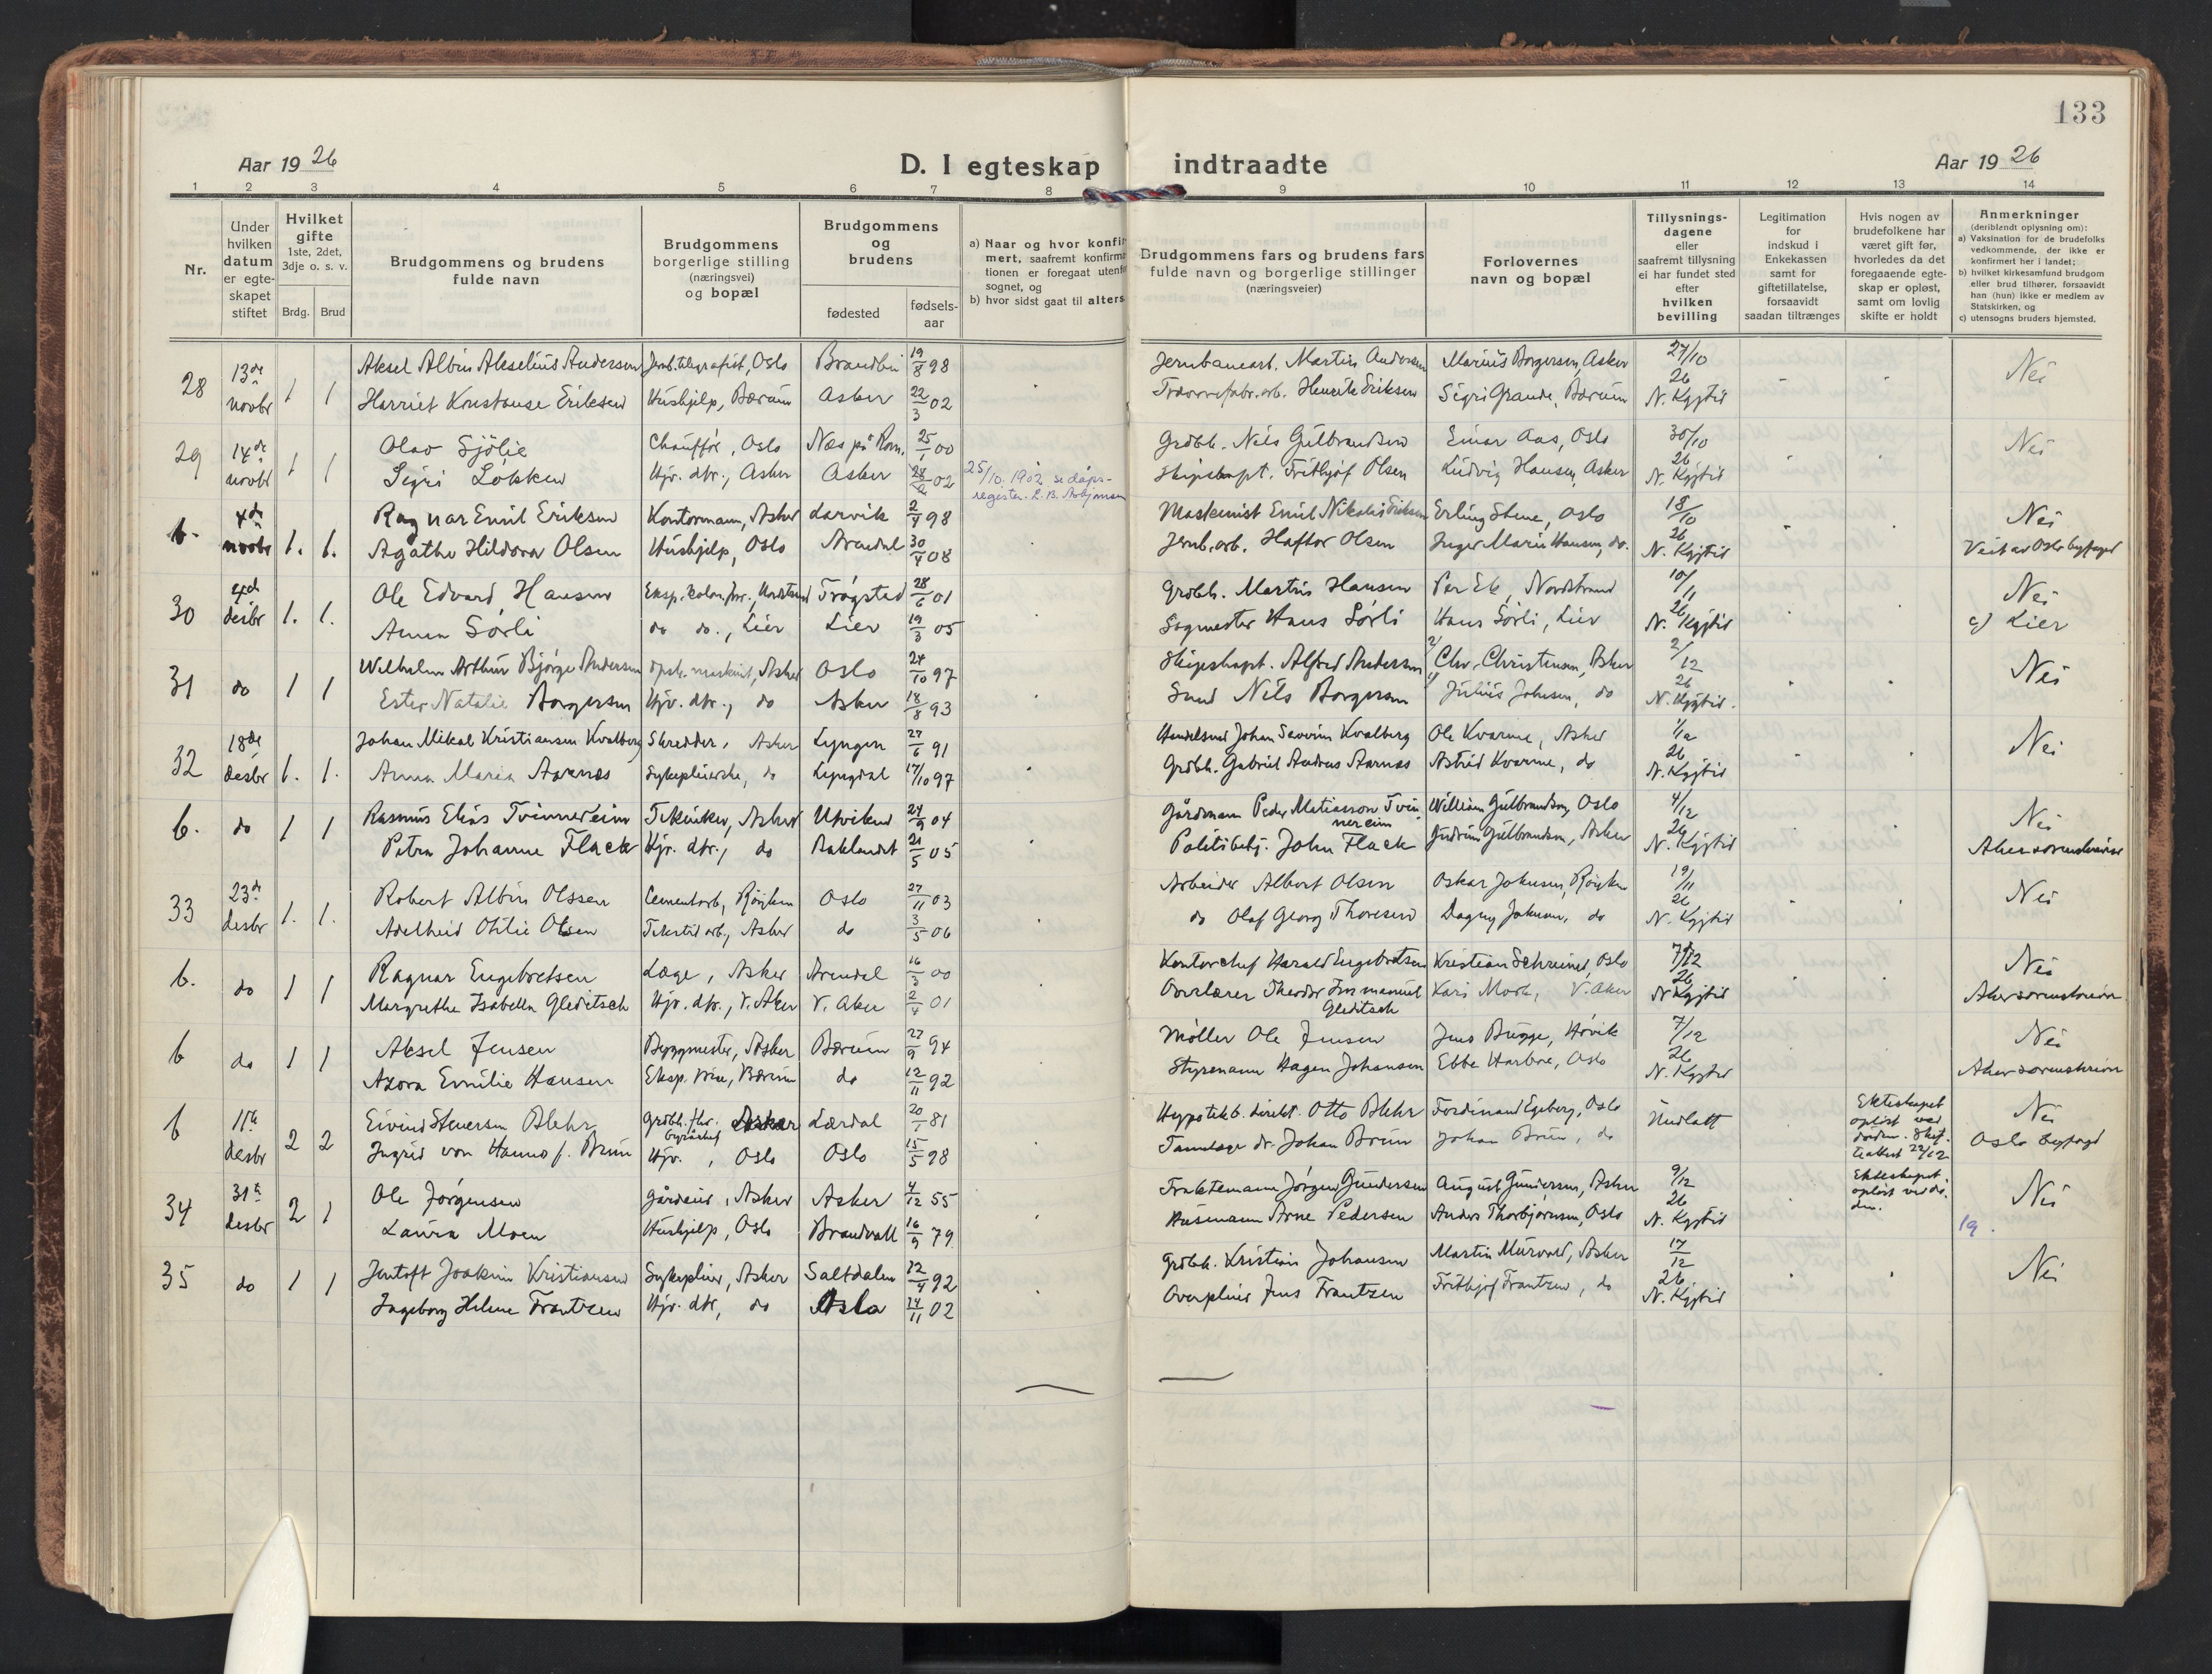 133
Aar 19 26
D. I egteskap indtraadte
Aar 19 26
1 2 3 4 5 6 7 8 9 10 11 12 13 14
Nr.
Under hvilken datum er egteskapet stiftet
Hvilket gifte 1ste, 2det, 3dje o. s. v.
Brdg. Brud
Brudgommens og brudens fulde navn
Brudgommens borgerlige stilling (næringsvei) og bopæl
Brudgommens og brudens
fødested
fødsels-aar
a) Naar og hvor konfir
mert, saafremt konfirma
tionen er foregaat utenfo
sognet, og
b) hvor sidst gaat til alters
Brudgommens fars og brudens fars
fulde navn og borgerlige stillinger
(næringsveier)
Forlovernes
navn og bopæl
Tillysnings-
dagene
eller
saafremt tillysning
ei har fundet sted
efter
hvilken
bevilling
Legitimation
for
indskud i
Enkekassen
samt for
giftetillatelse,
forsaavidt
saadan tiltrænges
Hvis nogen av
brudefolkene har
været gift før,
hvorledes da det
foregaaende egte-
skap er opløst,
samt om lovlig
skifte er holdt
Anmerkninger
(deriblandt oplysning om):
a) Vaksination for de brudefolks
vedkommende, der ikke er
konfirmert her i landet;
b) hvilket kirkesamfund brudgom
eller brud tilhører, forsaavidt
han (hun) ikke er medlem av
Statskirken, og
c) utensogns bruders hjemsted.
28 13de novbr 1 1 Aksel Albin Akselius Andersen Jernb.telegrafist, Oslo 19/8 98 Jernbanearb. Martin Andersen Marius Borgersen, Asker 27/10 26 Nei
Harriet Konstanse Eriksen Hushjelp, Bærum Asker 22/3 02 Henrik Eriksen Sigri Grande, Bærum N. Kgjtid
29 14de novbr 1 1 Olav Sjölie Chauffør, Oslo Næs på Rom. 25/1 00 Grdbr. Nils Gulbrandsen Einar Aas, Oslo 30/10 26 Nei
Sigri Løkken Hjv. dtr., Asker Asker 02 25/10 1902, se dåps-
register. Skipskapt. Frithjof Olsen Ludvig Hansen, Asker N. Kgjtid
b. 4de novbr 1. 1. Ragnar Emil Eriksen Kontormann, Asker Larvik 2/4 98 Maskinist Emil Nikolai Eriksen Erling Stene, Oslo 18/10 26 Nei
Agathe Hildora Olsen Hushjelp, Oslo Arendal 30/4 08 Jernb.arb. Haftor Olsen Inger Marie Hansen, do. N. Kgjtid Viet av Oslo byfoged
30 4de desbr 1. 1. Ole Edvard Hansen Trögstad 28/6 01 Grdbr. Martin Hansen Per Ek, Nordstrand 10/11 26 Nei
Anna Sørli do do., Lier Lier 19/3 05 Sagmester Hans Sørli Hans Sørli, Lier N. Kgjtid c) Lier
31 do 1 1 Wilhelm Arthur Bjørge Andersen Asker Oslo 24/10 97 Skipskapt. Alfred Andersen Chr. Christensen, Asker 2/12 26 Nei
Ester Natalie Borgersen Hjv. dtr., do Asker 18/8 93 Smed Nils Borgersen Julius Johnsen, do N. Kgjtid.
32 18de desbr 1. 1. Johan Mikal Kristiansen Kvalberg Skredder, Asker Lyngen 27/6 91 Johan Severin Kvalberg Ole Kvarme, Asker 26 Nei
Anna Maria Aarnes Sykepleierske, do Lyngdal 17/10 97 Grdbr. Gabriel Andreas Aarnas Astrid Kvarme, do N. Kgjtid
b. do 1 1 Rasmus Elias Tvinnereim Tekniker, Asker Utviken 24/9 04 Gårdmann Peder Matiasson Tvin-
nereim William Gulbrandsen, Oslo 4/12 26 Nei
Petra Johanne Flack Hjv. dtr., do Baklandet 21/5 05 Politibetj. John Flack Gudrun Gulbrandsen, Asker N. Kgjtid Aker sorenskriver
33 23de desbr 1. 1. Robert Albin Olssen Cementarb, Røyken Oslo 27/11 03 Arbeider Albert Olsen Oskar Johnsen, Røyken 19/11 26 Nei
Adelheid Otilie Olsen Tekstilarb., Asker do 3/5 06 do Olaf Georg Thoresen Dagny Johnsen, do N. Kgjtid
b. do 1 1 Ragnar Engebretsen Læge, Asker Arendal 16/3 00 Kontorchef Harald Engebretsen Kristian Schreiner, Oslo 7/12 26 Nei
Margrethe Isabella Gleditsch Hjv. dtr., V. Aker V. Aker 2/4 01 Overlærer Theodor Immanuel
Gleditsch Kari Mork, V. Aker N Kgjtid Aker sorenskriver
b do 1 1 Aksel Jensen Byggmester, Asker Bærum 27/9 94 Møller Ole Jensen Jens Bugge, Høvik 7/12 26 Nei
Azora Emilie Hansen Eksp. , Bærum do 12/11 92 Styrmann Hagen Johansen Ebbe Harboe, Oslo N. Kgjtid Aker sorenskriver
b 11te desbr 2 2 Eivind Stenersen Blehr Asker Lærdal 20/1 81 Hypotekb. direkt. Otto Blehr Ferdinand Egeberg, Oslo Undlatt Ekteskapet
opløst ved
Nei
Ingrid von Hanno f. Bruun Hjv. , Oslo Oslo 15/5 98 Tannlæge dr. Johan Bruun Johan Bruun, do Oslo byfogd
34 31te desbr 2 1 Ole Jørgensen Gårdeier, Asker Asker 4/12 55 Jørgen Gundersen August Gundersen, Asker 9/12 26 Ekteskapet
opløst ved dø-
den. Nei
Laura Moen Hushjelp, Oslo Brandvall 16/9 79 Husmann Arne Pedersen Anders Thorbjørnsen, Oslo N. Kgjtid 19.
35 do 1 1 Jentoft Joakim Kristiansen Sykepleier, Asker Saltdalen 12/4 92 Grdbr. Kristian Johansen Martin Murvold, Asker 17/12 26 Nei
Ingeborg Helene Frantzen Hjv. dtr, do Oslo 14/11 02 Overpleier Jens Frantzen Frithjof Frantzen, do N. Kgjtid